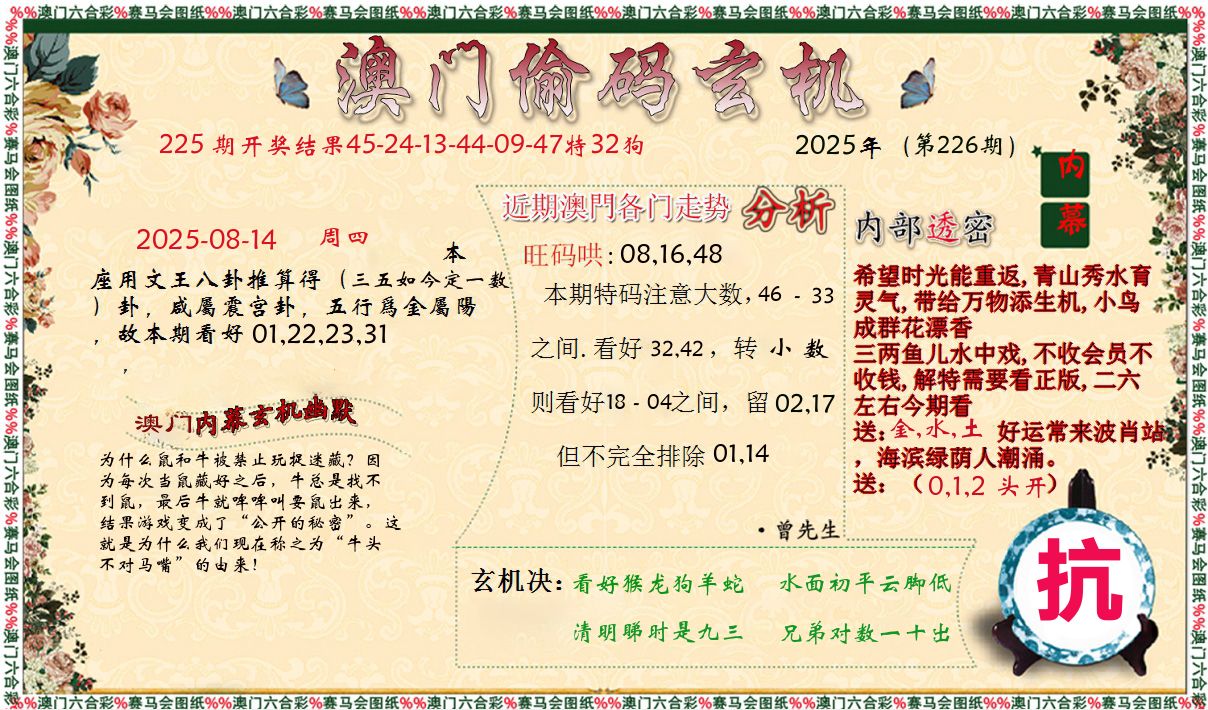 %%澳门六合彩%赛马会图纸%%澳门六合彩%赛马会图纸%%澳门六合彩%赛马会图纸%%澳门六合彩%赛马会图纸%%澳门六合彩%赛马会图纸%%澳门六合彩%赛马会图纸%%
澳门偷码玄机
225 期开奖结果45-24-13-44-09-47特32狗
2025年（第226期）
内幕
2025-08-14 周四
本
座用文王八卦推算得（三五如今定一数
）卦，咸屬震宫卦，五行爲金屬陽
，故本期看好 01,22,23,31
，
澳门内幕玄机幽默
为什么鼠和牛被禁止玩捉迷藏？因
为每次当鼠藏好之后，牛总是找不
到鼠，最后牛就哞哞叫要鼠出来，
结果游戏变成了“公开的秘密”。这
就是为什么我们现在称之为“牛头
不对马嘴”的由来！
近期澳門各门走势 分析
旺码哄: 08,16,48
本期特码注意大数，46 - 33
之间. 看好 32,42 ，转 小 数
则看好18 - 04之间，留 02,17
但不完全排除 01,14
·曾先生
内部透密
希望时光能重返, 青山秀水育
灵气, 带给万物添生机, 小鸟
成群花漂香
三两鱼儿水中戏, 不收会员不
收钱, 解特需要看正版, 二六
左右今期看
送: 金, 水, 土 好运常来波肖站
，海滨绿荫人潮涌。
送：（0,1,2 头开）
抗
玄机决: 看好猴龙狗羊蛇 水面初平云脚低
清明睇时是九三 兄弟对数一十出
%%澳门六合彩%赛马会图纸%%澳门六合彩%赛马会图纸%%澳门六合彩%赛马会图纸%%澳门六合彩%赛马会图纸%%澳门六合彩%赛马会图纸%%澳门六合彩%赛马会图纸%%